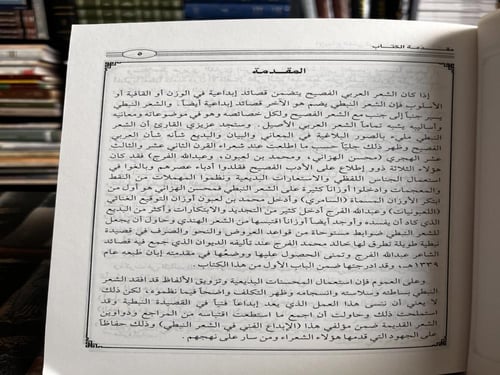 مقدمة الكتاب
٥
المقدمة
إذا كان الشعر العربي الفصيح يتضمن قصائد إبداعية في الوزن أو القافية أو
الأسلوب فإن الشعر النبطي يضم هو الآخر قصائد إبداعية أيضاً. والشعر النبطي
يسير جنباً إلى جنب مع الشعر الفصيح ولكل خصائصه وهو في موضوعاته ومعانيه
وأساليبه يشبه تماماً الشعر العربي الأصيل. وستجد عزيزي القارئ أن الشعر
النبطي مليء بالصور البلاغية في المعاني والبيان والبديع شأنه شأن العربي
الفصيح وظهر ذلك جلياً حسب ما اطلعت عند شعراء القرن الثاني عشر والثالث
عشر الهجري (محسن الهزاني، ومحمد بن لعبون، وعبدالله الفرج) فقد كان
هؤلاء الثلاثة ذوو إطلاع على الأدب الفصيح فقلدوا أدباء عصرهم وبالغوا في
استعمال الجناس اللفظي والاستعارات البديعية ونظموا المهملات من النقط
والمعجمات وادخلوا أوزاناً كثيرة على الشعر النبطي فمحسن الهزاني هو أول من
ابتكر الأوزان المسماة (السامري) وأدخل محمد بن لعبون أوزان التوقيع الغنائي
(اللعبونيات) وعبدالله الفرج أدخل كثير من التجديد والابتكارات وأكثر من البديع
الذي كاد أن يفسده وأوجد أيضاً أوزاناً اقتبسها من الشعر الهندي وحاول أن يجعل
للشعر النبطي ضوابط مستوحاة من قواعد العروض والنحو والصرف في قصيدة
نبطية طويلة تطرق لها خالد محمد الفرج عند تأليفه الديوان الذي جمع فيه قصائد
الشاعر عبدالله الفرج وتمنى الحصول عليها ووضعها في مقدمته إبان طبعه عام
١٣٣٩هـ، وقد ادرجتها ضمن الباب الأول من هذا الكتاب.
وعلى العموم فإن استعمال المحسنات البديعية وتزويق الألفاظ قد افقد الشعر
النبطي بساطته وسلاسته وانسجامه وظهر التكلف واضحاً فيما نظموه، لكن ذلك
لا يعني أن ننسى هذا العمل الذي يعد إبداعاً فنياً في القصيدة النبطية وقد
استملحت ذلك وحاولت أن اجمع ما استطعت اقتباسه من المراجع ودواوين
الشعر القديمة ضمن مؤلفي هذا (الإبداع الفني في الشعر النبطي) وذلك حفاظاً
على الجهود التي قدمها هؤلاء الشعراء ومن سار على نهجهم.